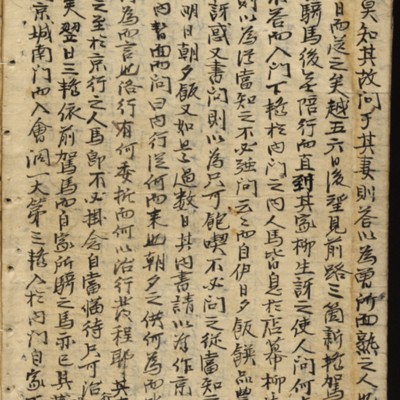 知其故問于其妻則答以爲曾所面熟之人
日而 之矣越五六日後望見前路三箇新轎駕
騎馬後 陪行而直到其家柳生訝之使人問何
不答而入門下轎於內門之內人馬皆息於店幕柳
則以爲從當知之不必强問云云而自伊日夕飯饌品
訝惑又書問則以爲只可飽喫不必問之從當知
明日朝夕飯又如是過數日其內書請以 作京
內 面而問曰內行從何而來也朝夕之供何爲而
何爲而言也治行有何委折而何以治行 程耶其
之至於京行之人馬卽不必掛念自當備待只可治
矣翌日三轎依前駕馬而自家所騎之馬亦已具
京城南門而入會洞一大第三轎入於內門自家